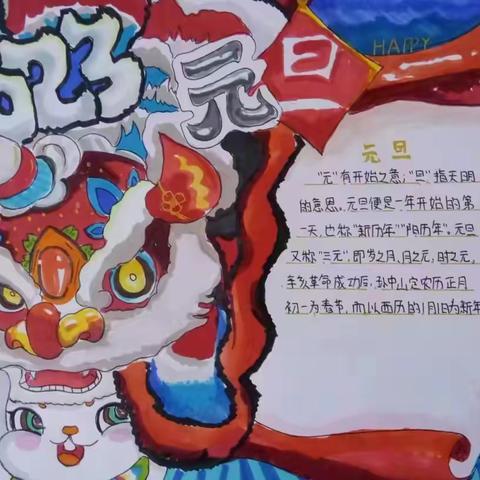 023
元
旦
HAPPY
元旦
"元"有开始之意，"旦"指天明
的意思。元旦便是一年开始的第
一天，也被"新历年""阳历年"。元旦
又被"三元"，即岁之月，月之元，时之元，
辛亥革命成功后，孙中山定农历正月
初一为春节，而以西历的1月1日为新年